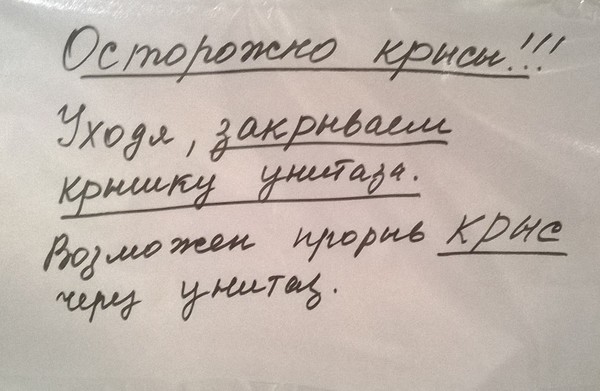 Осторожно крысы!!!
Уходя, закрываем
крышку унитаза.
Возможен прорыв крыс
через унитаз.